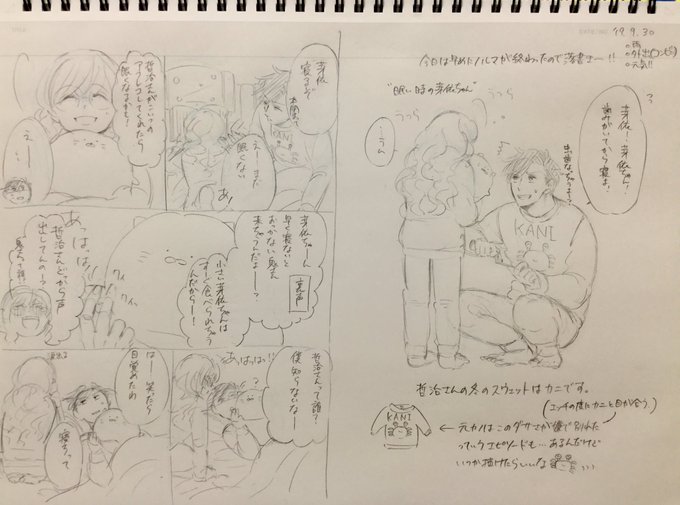 '19.9.30
○雨
○外出(コンビニ)
○元気!!
今日は早めにノルマが終わったので落書きー!!
"眠い時の芽依ちゃん"
うつら
うつら
…うん
芽依ー
芽依ちゃん!
歯みがいてから寝よ。
虫歯なっちゃうよー?
KANI
哲治さんの冬のスウェットはカニです。
(エッチの度にカニと目が合う)
KANI
← 元カノはこのダサさが嫌で別れた
っていうエピソードも…あるんだけど
いつか描けたらいいな
芽依
寝るぞ
お腹
KANI
えーまだ
眠くない
あ!
哲治さんがこいつの
アフレコしてくれたら
眠くなるかも!
えー…
芽依ちゃーん
早く寝ないと
おっかない鬼さん
来ちゃうんだよー?
裏声
小さい芽依ちゃんは
すーぐ食べられちゃう
んだからー!
クイッ
クイッ
あっはっは
哲治さんどっから声
出してんのー?
哲治さんって誰?
僕知らないなー
あっはっは!!
はー笑たら
目覚めたわ
寝ろって